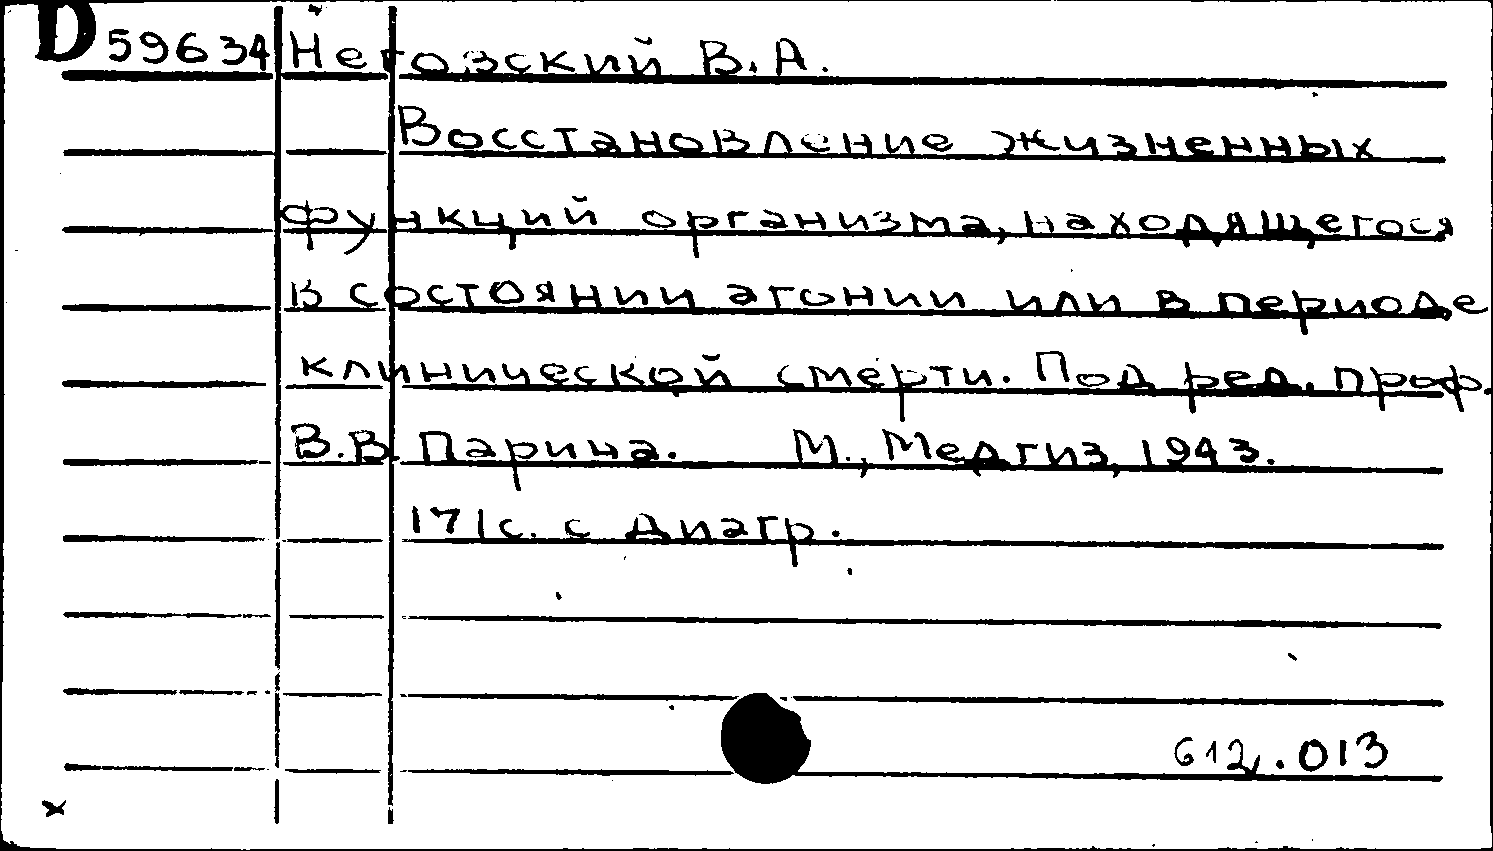 D 59634 Неговский В. А.
Восстановление жизненных
функций организма, находящегося
в состоянии агонии или в периоде
клинической смерти. Под ред. проф.
В.В. Парина. М., Медгиз, 1943.
171с. с диагр.
612.013
x